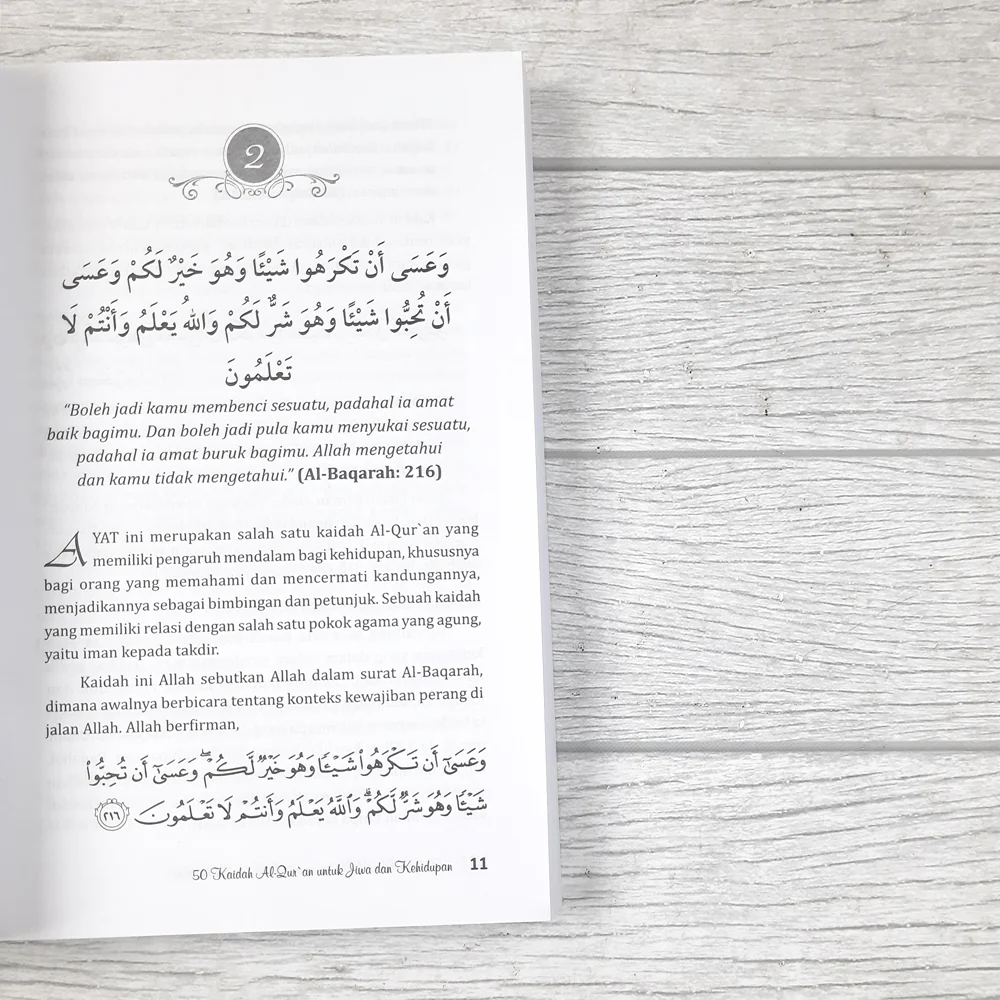 2
وَعَسَى أَنْ تَكْرَهُوا شَيْئًا وَهُوَ خَيْرٌ لَكُمْ وَعَسَى
أَنْ تُحِبُّوا شَيْئًا وَهُوَ شَرٌّ لَكُمْ وَاللهُ يَعْلَمُ وَأَنْتُمْ لَا
تَعْلَمُونَ
“Boleh jadi kamu membenci sesuatu, padahal ia amat
baik bagimu. Dan boleh jadi pula kamu menyukai sesuatu,
padahal ia amat buruk bagimu. Allah mengetahui
dan kamu tidak mengetahui.” (Al-Baqarah: 216)
AYAT ini merupakan salah satu kaidah Al-Qur`an yang
memiliki pengaruh mendalam bagi kehidupan, khususnya
bagi orang yang memahami dan mencermati kandungannya,
menjadikannya sebagai bimbingan dan petunjuk. Sebuah kaidah
yang memiliki relasi dengan salah satu pokok agama yang agung,
yaitu iman kepada takdir.
Kaidah ini Allah sebutkan Allah dalam surat Al-Baqarah,
dimana awalnya berbicara tentang konteks kewajiban perang di
jalan Allah. Allah berfirman,
وَعَسَىٰٓ أَن تَكْرَهُوا۟ شَيْـًٔا وَهُوَ خَيْرٌ لَّكُمْ ۖ وَعَسَىٰٓ أَن تُحِبُّوا۟
شَيْـًٔا وَهُوَ شَرٌّ لَّكُمْ ۗ وَٱللَّهُ يَعْلَمُ وَأَنتُمْ لَا تَعْلَمُونَ ٢١٦
50 Kaidah Al-Qur`an untuk Jiwa dan Kehidupan 11